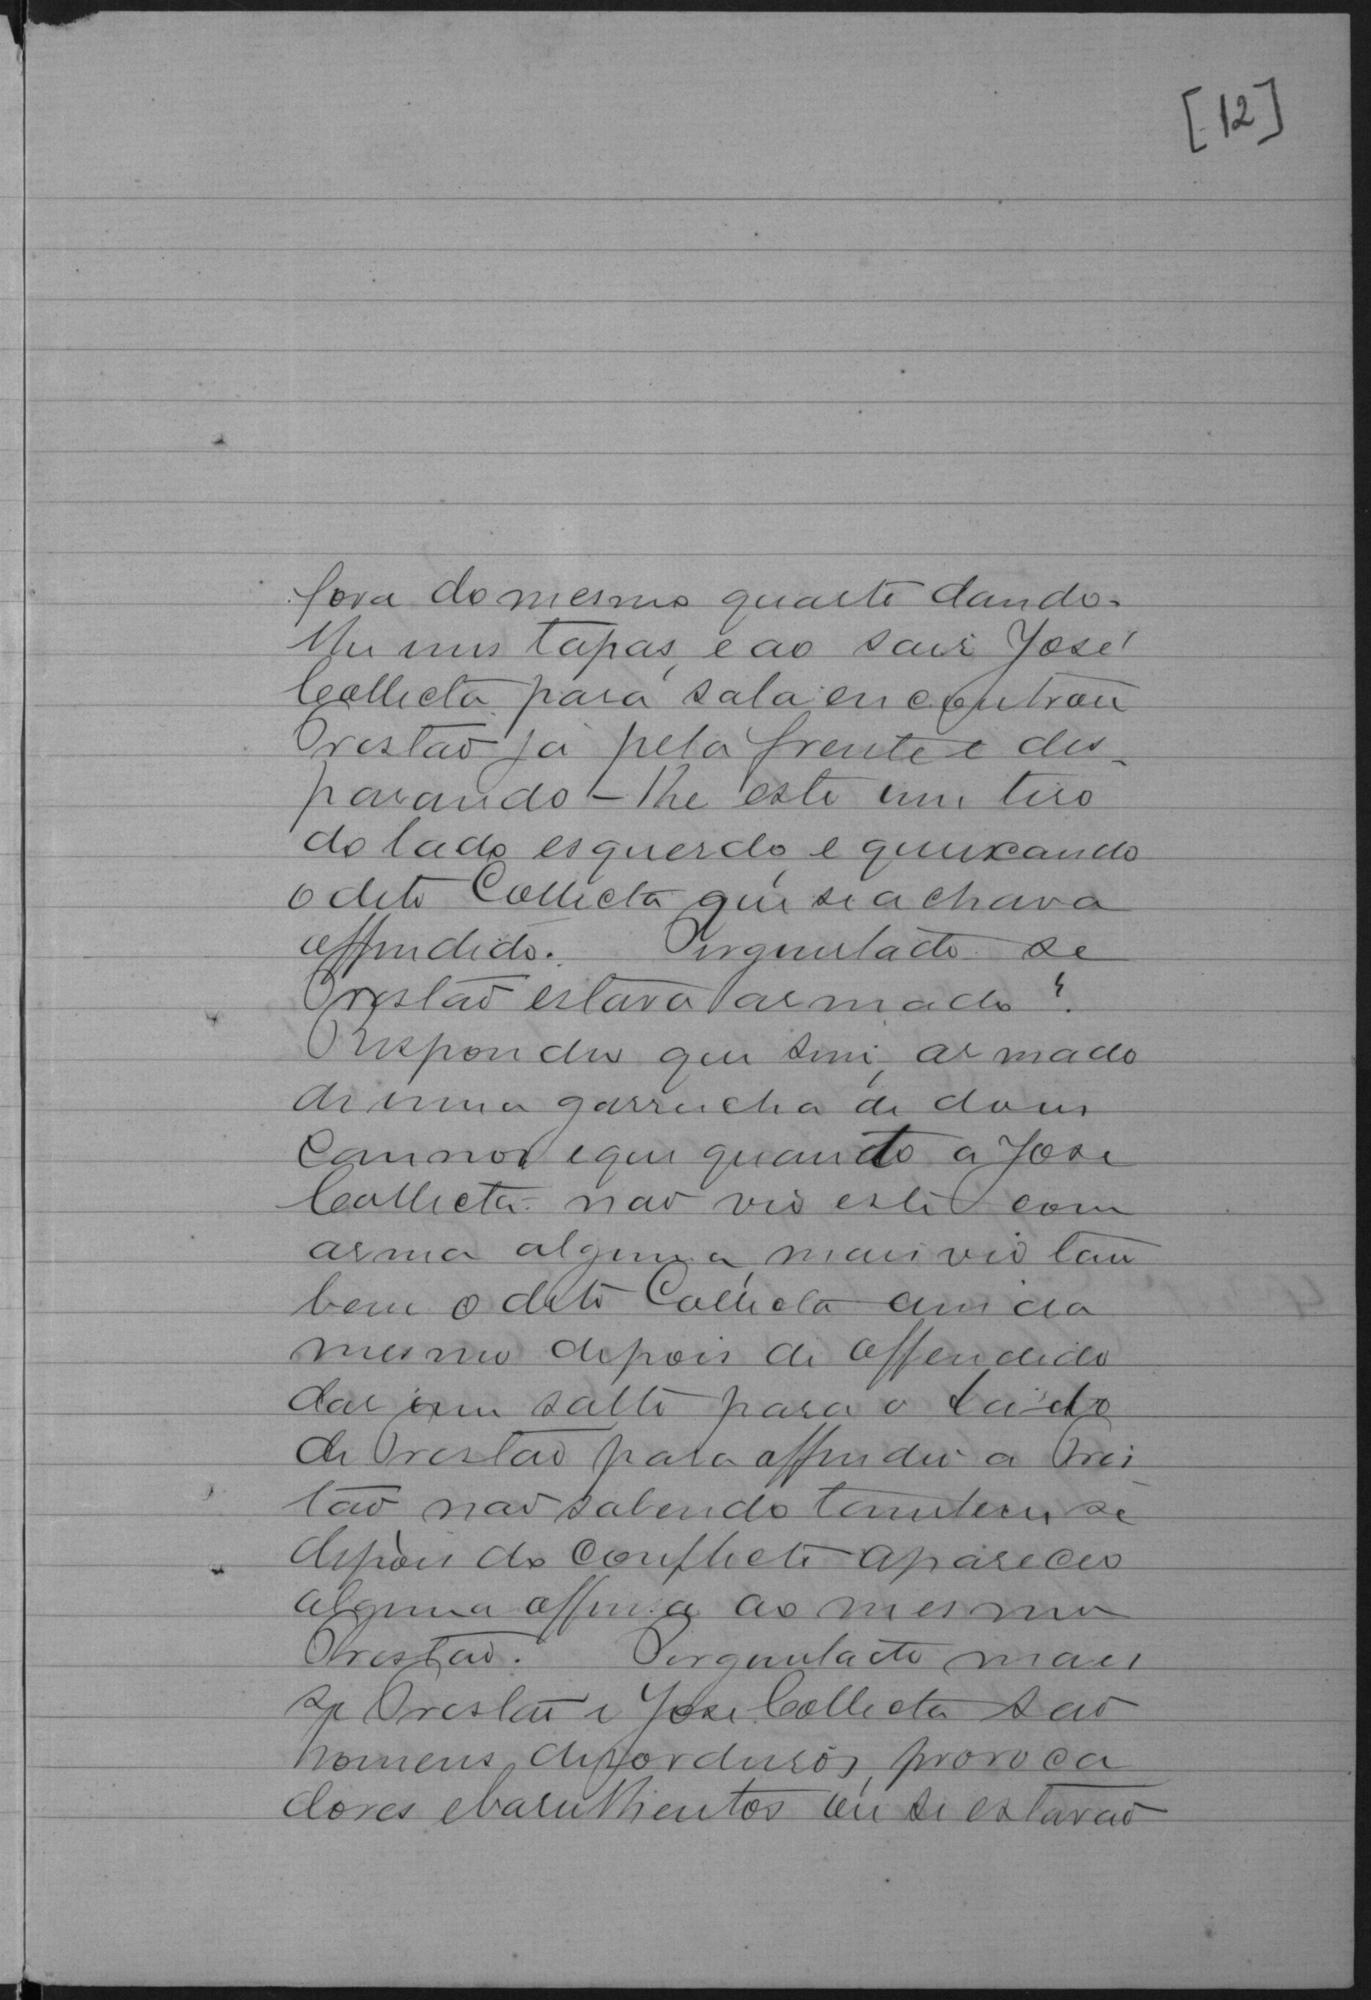 [12]
fora do mesmo quarto dando-
lhe uns tapas, e ao sair José
Collecta para sala encontrou
Orestão já pela frente e des-
parando-lhe este um tiro
do lado esquerdo, e queixando
o dito Collecta que se achava
offendido. Perguntado se
Orestão estava armado?
Respondeu que sim, armado
de uma garrucha de dous
cannos e que quanto a Jose
Collecta não vio este com
arma alguma, mais vio tam
bem o dito Collecta ainda
mesmo depois de offendido
dar um salto para o lado
de Orestão para offender a Ores
tão não sabendo tambem se
depois do conflicto apareceo
alguma offensa ao mesmo
Orestão. Perguntado mais
se Orestão e Jose Collecta são
homens desordeiros, provoca
dores e barulhentos ou se estavão